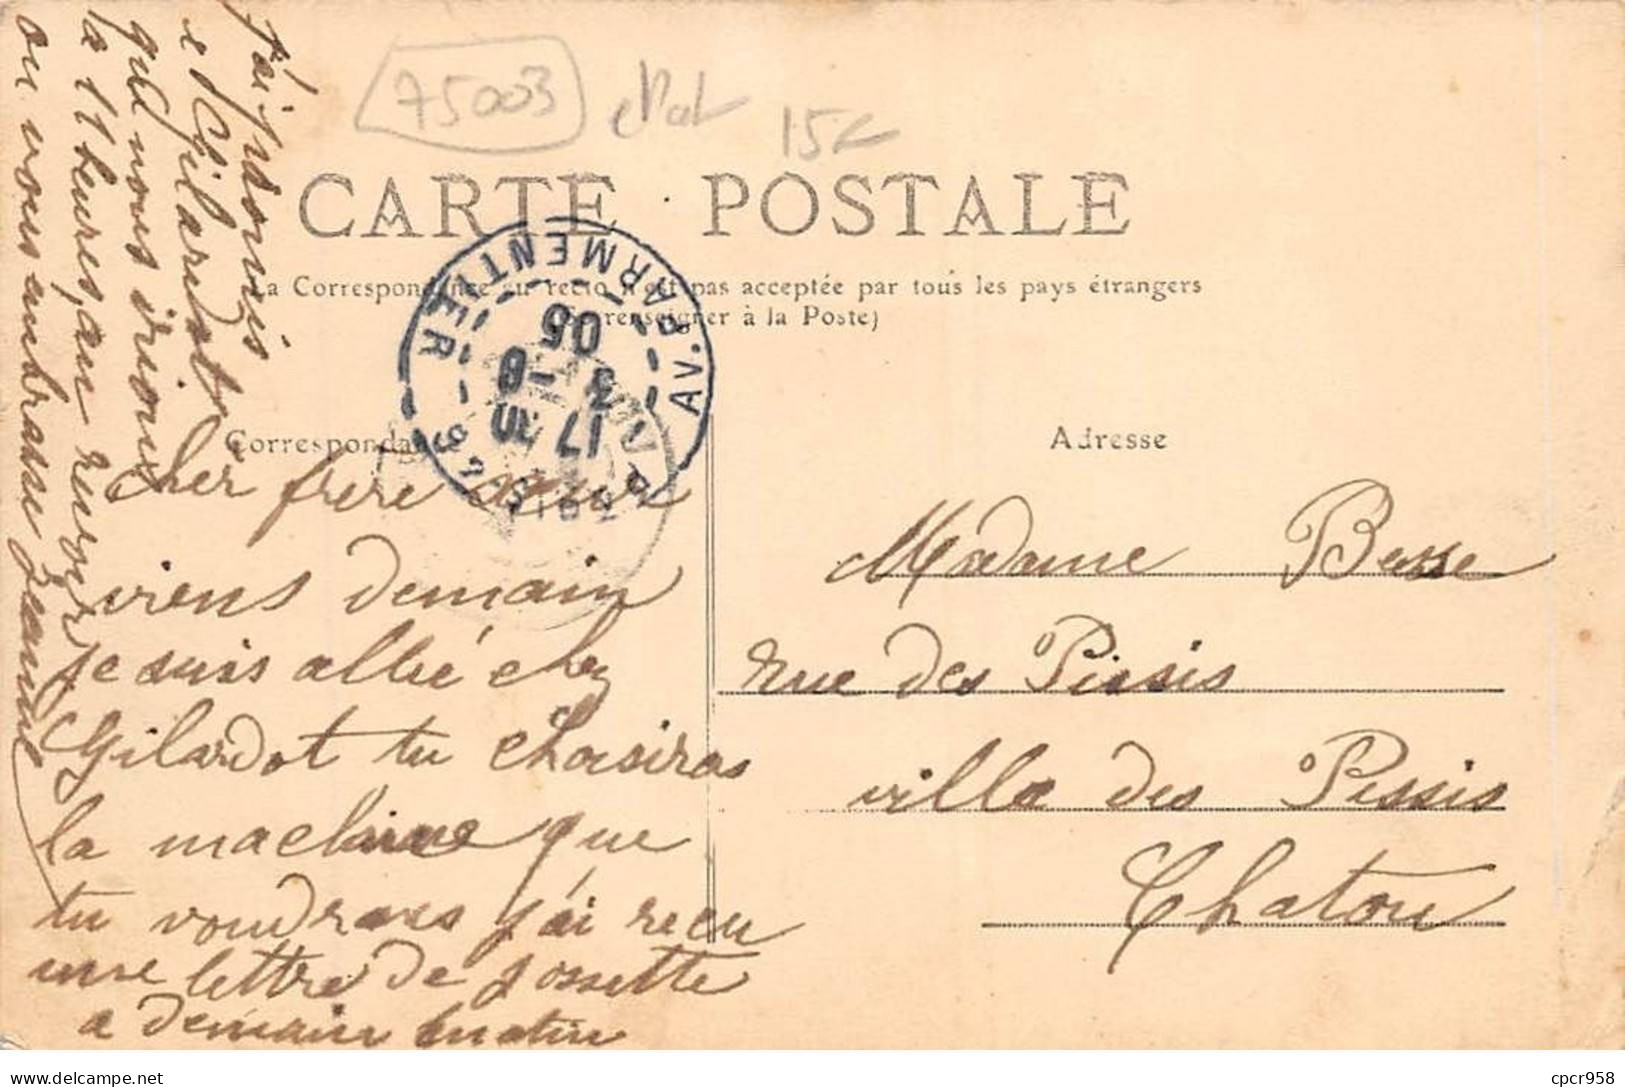 75003
15€
CARTE POSTALE
La Correspondance au recto n'est pas acceptée par tous les pays étrangers
(Se renseigner à la Poste)
Correspondance
Adresse
AV. PARMENTIER
17 30
3 - 8
05
Cher frère
viens demain
je suis allée chez
Gilardot tu choisiras
la machine que
tu voudras j'ai reçu
une lettre de Jossette
a demain matin
J'ai
Gilardot
que nous irions
a 11 heures, au revoir
on vous embrasse Jeanne
Madame Besse
rue des Pissis
villa des Pissis
Chatou
cpcr958